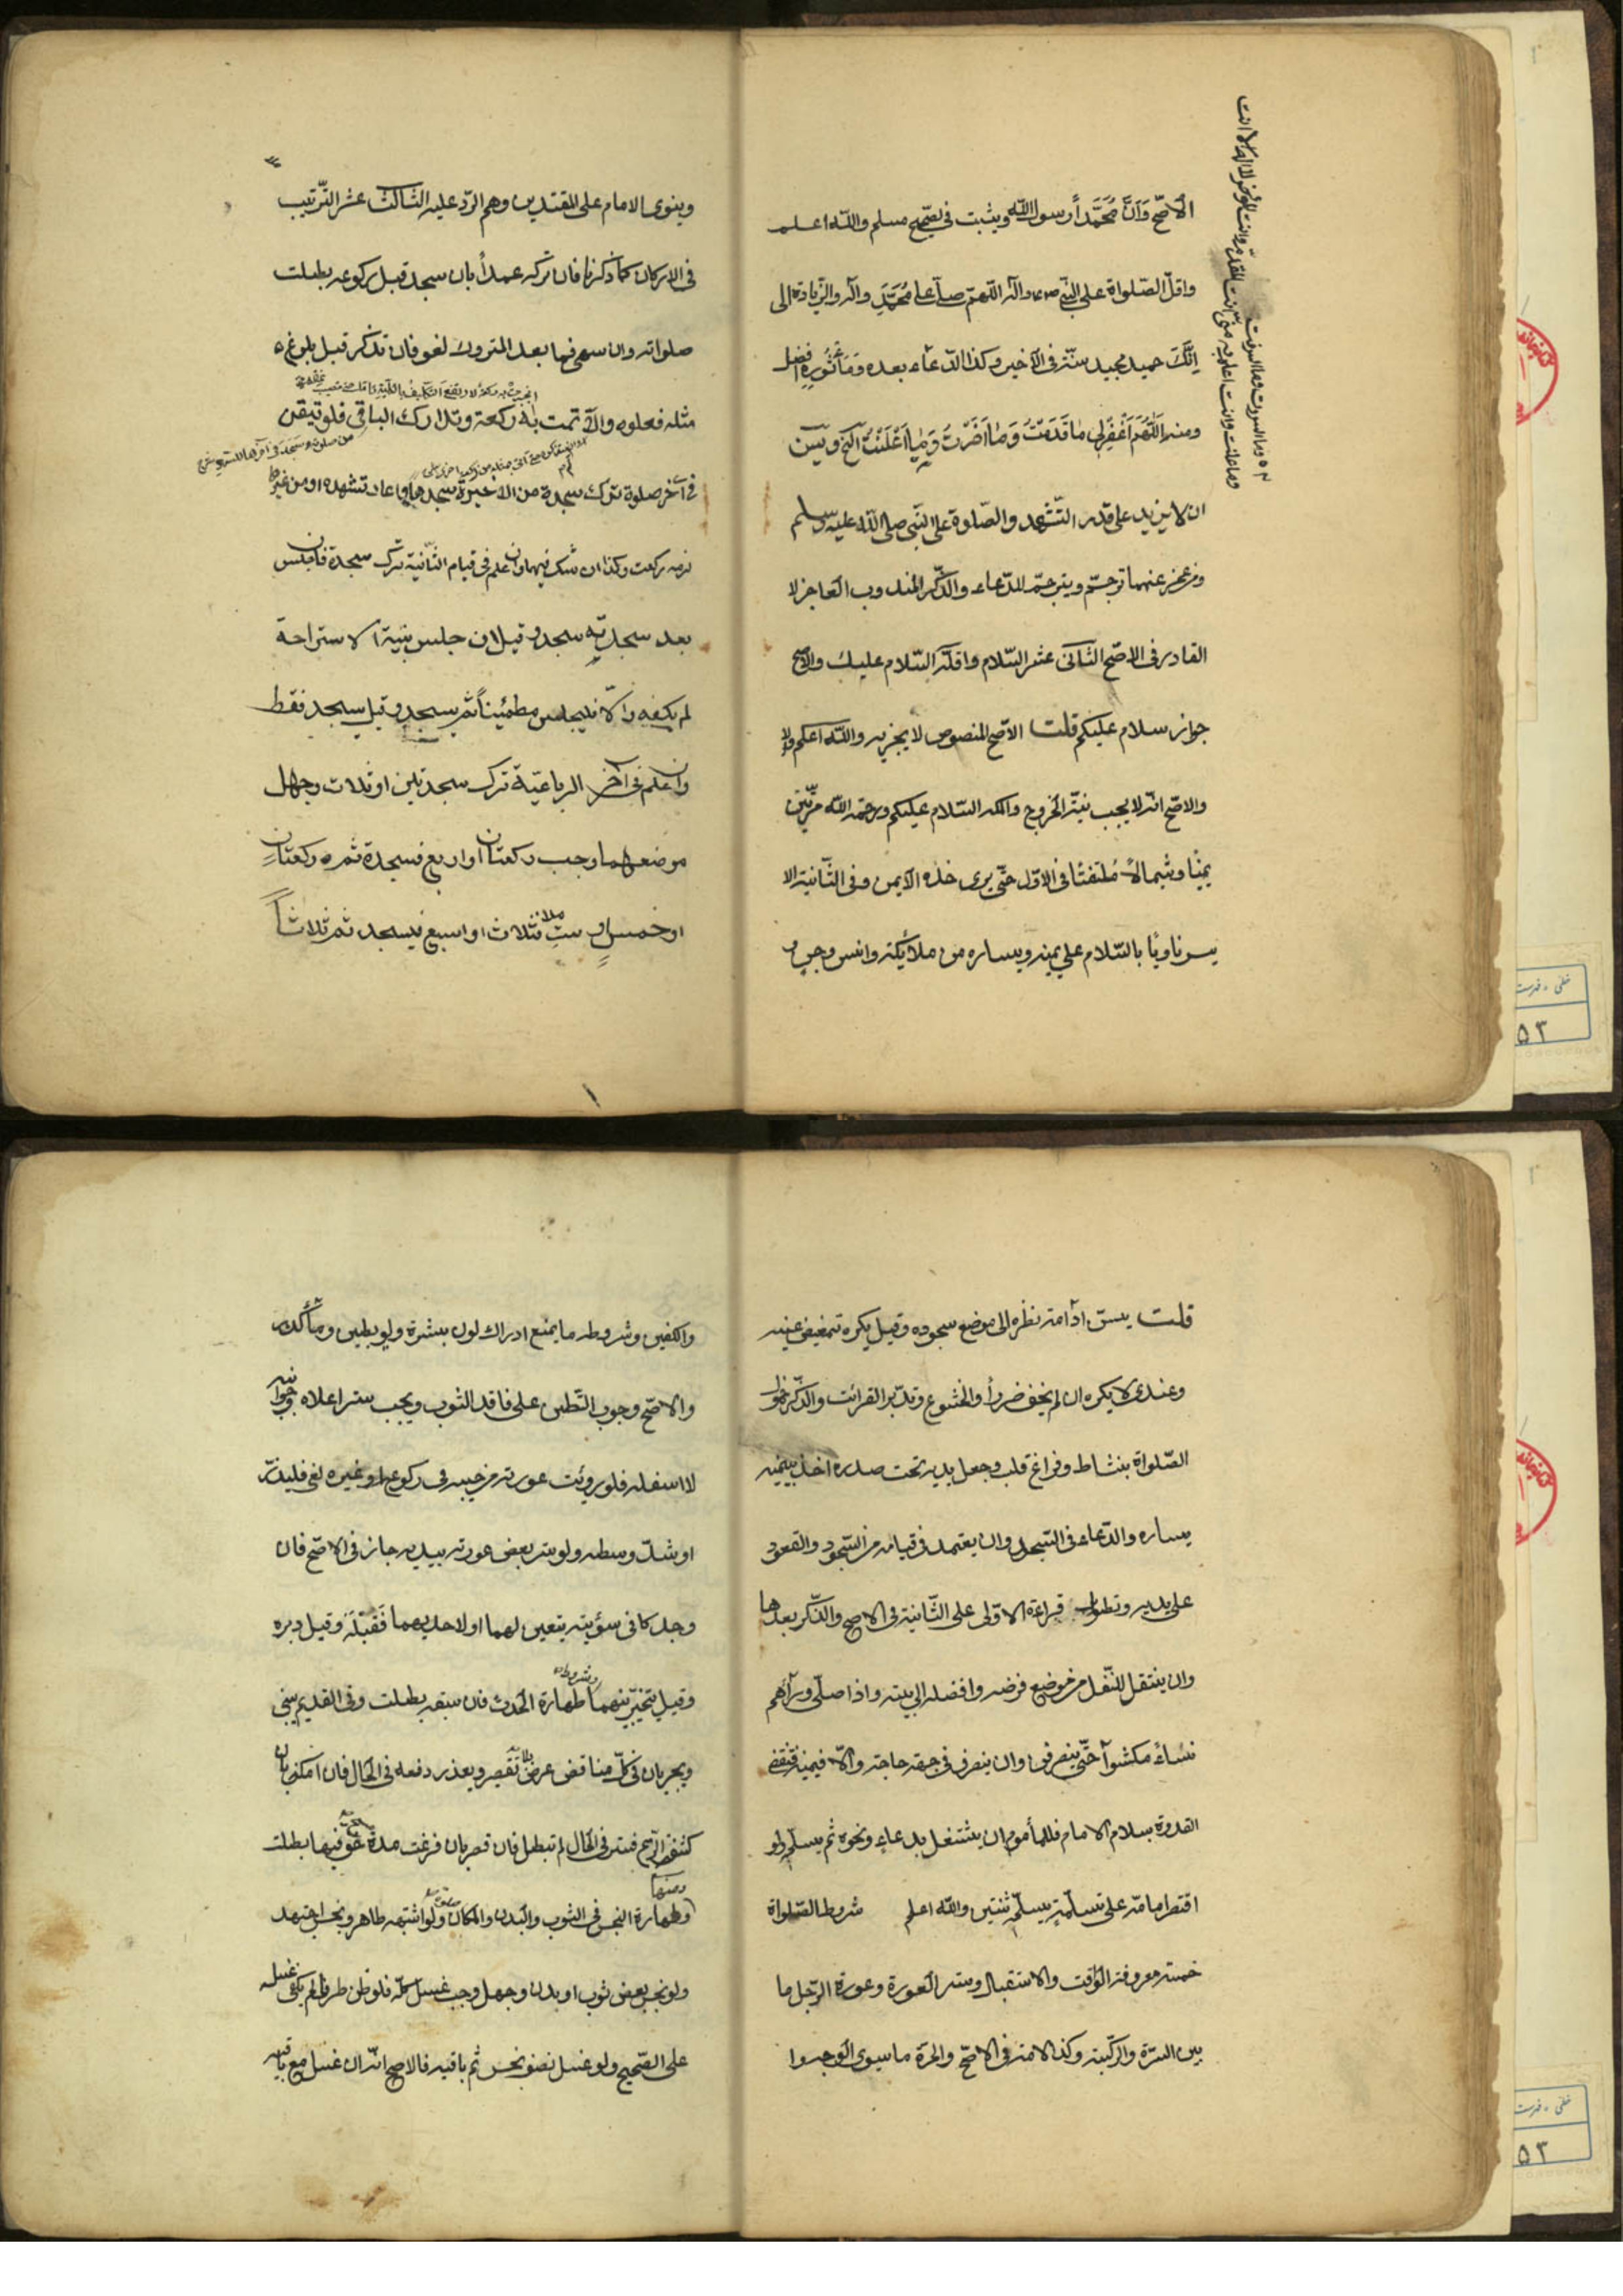 الأصّح وَاَنَّ مُحَمَّداً رسول اللّه ويثبت فى صحيح مسلم واللّه اعلم
واقلّ الصّلواة على النبّى وآله اللّهمّ صلّ على مُحَمَّدٍ وآله والزّيادة الى
اِنَّكَ حميد مجيد سنّة فى الأخير وكذا الدّعاء بعده وَمَأثُوره افضل
ومنه اَللّٰهُمَّ اَغْفِرْلِى مٰا قَدَمْتُ وَمٰا اَخَّرْتُ وَمٰا اَعْلَنْتُ الخ ويسن
ان لا يزيد على قدر التّشهد والصّلوة على النّبى صلى اللّه عليه وسلم
ومن عجز عنهما ترجم ويترجمّ للدّعاء والذّكر المندوب العاجز لا
القادر فى الاصّح الثّانى عشر السّلام واقلّه السّلام عليك والاصح
جواز سلام عليكم قلت الأصّح المنصوص لا يجزيه واللّه اعلم
والاصّح انّه لا يجب نيّة الخروج واكمله السّلام عليكم ورحمة اللّه مرّتين
يمينًا وشمالًا مُلتفتًا فى الاوّل حتّى يرى خدّه الأيمن وفى الثّانية الا
يسر ناويًا بالسّلام على يمينه ويساره من ملائكة وانس وجن و
وما اسررت وما اسرفت
وما اعلنت وما انت اعلم به منّى انت المقدّم وانت المؤخر لا اله الا انت
وينوى الامام على المقتدين وهم الردّ عليه الثالث عشر التّرتيب
فى الاركان كما ذكرنا فان تركه عمداً بان سجد قبل ركوعه بطلت
صلواته وان سهى فما بعد المتروك لغو فان تذكر قبل بلوغ
مثله فعله والّا تمت به ركعة وتدارك الباقى فلو تيقن
فى آخر صلوة ترك سجدة من الاخيرة سجدها واعاد تشهده او من غيرها
لزمه ركعت وكذا ان شك فيهما وان علم فى قيام الثّانية ترك سجدة فان كان جلس
بعد سجدته سجد وقيل ان جلس بنية الاستراحة
لم يكفه والّا فيجلس مطمئناً ثم يسجد وقيل يسجد فقط
وان علم فى آخر الرباعيّة ترك سجدتين او ثلاث وجهل
موضعهما وجب ركعتان او اربع فسجدة ثم ركعتان
او خمس او ست فثلاث او سبع فيسجد ثم ثلاثاً
قلت يسنّ ادامة نظره الى موضع سجوده وقيل يكره تغميض عينيه
وعندى لا يكره ان لم يخف ضرراً والخشوع وتدبّر القرائت والذّكر ودخول
الصّلواة بنشاط وفراغ قلب وجعل يديه تحت صدره اخذ بيمينه
يساره والدّعاء فى السّجود وان يعتمد فى قيامه من السّجود والقعود
على يديه وتطويل قراءة الاوّلى على الثّانية فى الاصح والذّكر بعدها
وان ينتقل للنّفل من موضع فرضه وافضله الى بيته واذا صلّى ورآهم
نساءٌ مكثوا حتّى ينصرفن وان ينصرف فى جهة حاجته والّا فيمينه وتنقضى
القدوة بسلام الامام فللمأموم ان يشتغل بدعاءٍ ونحوه ثم يسلّم ولو
اقتصر امامه على تسليمة يسلّم ثنتين واللّه اعلم شروط الصّلواة
خمسة معرفة الوقت والاستقبال وستر العورة وعورة الرّجل ما
بين السّرة والرّكبة وكذا الامة فى الاصّح والحرّة ما سوى الوجه وا
والكفين وشرطه ما يمنع ادراك لون بشرة ولو بطين وماء كدر
والاصّح وجوب التّطين على فاقد الثوب ويجب ستر اعلاه وجوانبه
لا اسفله فلو رويئت عورته من جيبه فى ركوع او غيره لم يكف فليزرّه
او شدّ وسطه وله ستر بعض عورته بيديه جاز فى الاصّح فان
وجد كافى سؤتيه يتعين لهما او لاحديهما فَقُبُلَه وقيل دبره
وقيل يتخيّر بينهما وشروط طهارة الحدث فان سبقه بطلت وفى القديم يبنى
ويجريان فى كلّ مناقض عرض بلا تقصير وتعذر دفعه فى الحال فان امكن بان
كشفته الرّيح فستر فى الحال لم تبطل فان قصر بان فرغت مدة خفّ فيها بطلت
وطهارة النجس فى الثوب والبدن والمكان ولو اشتبه طاهر ونجس اجتهد
ولو نجس بعض ثوب او بدن وجهل وجب غسل كلّه فلو ظن طرفا لم يكف غسله
على الصّحيح ولو غسل نصف نجس ثم باقيه فالاصح انّه ان غسل مع باقيه
خطى ، فهرست
٥٣
خطى ، فهرست
٥٣